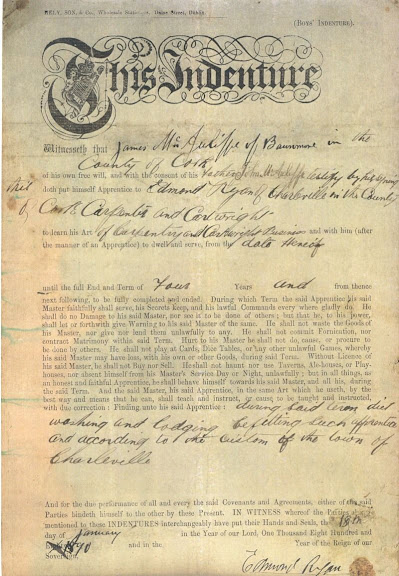 ELY, SON, & Co., Wholesale Stationers, Dame Street, Dublin.
(BOYS' INDENTURE).
This Indenture
Witnesseth that James Mc Auliffe of Baunmore in the
County of Cork
of his own free will, and with the consent of his Father John McAuliffe testify by his signing
doth put himself Apprentice to Edmond Ryan of Charleville in the County
of Cork Carpenter and Cartwright
to learn his Art of Carpenters and Cartwright Business and with him (after
the manner of an Apprentice) to dwell and serve, from the date hereof
until the full End and Term of Four Years and from thence
next following, to be fully completed and ended. During which Term the said Apprentice his said
Master faithfully shall serve, his Secrets keep, and his lawful Commands every where gladly do. He
shall do no Damage to his said Master, nor see it to be done of others; but that he, to his power,
shall let or forthwith give Warning to his said Master of the same. He shall not waste the Goods of
his Master, nor give nor lend them unlawfully to any. He shall not commit Fornication, nor
contract Matrimony within said Term. Hurt to his Master he shall not do, cause, or procure to
be done by others. He shall not play at Cards, Dice Tables, or any other unlawful Games, whereby
his said Master may have loss, with his own or other Goods, during said Term. Without Licence of
his said Master, he shall not Buy nor Sell. He shall not haunt nor use Taverns, Ale-houses, or Play-
houses, nor absent himself from his Master's Service Day or Night, unlawfully; but in all things, as
an honest and faithful Apprentice, he shall behave himself towards his said Master, and all his, during
the said Term. And the said Master, his said Apprentice, in the same Art which he useth, by the
best way and means that he can, shall teach and instruct, or cause to be taught and instructed,
with due correction: Finding, unto his said Apprentice: during said term diet
washing and lodging befitting such apprentice
and according to the custom of the town of
Charleville
And for the due performance of all and every the said Covenants and Agreements, either of the said
Parties bindeth himself to the other by these Present. IN WITNESS whereof the Parties
mentioned to these INDENTURES interchangeably have put their Hands and Seals, the 18th
day of January in the Year of our Lord, One Thousand Eight Hundred and
1890 and in the Year of the Reign of our
Sovereign
Edmond Ryan